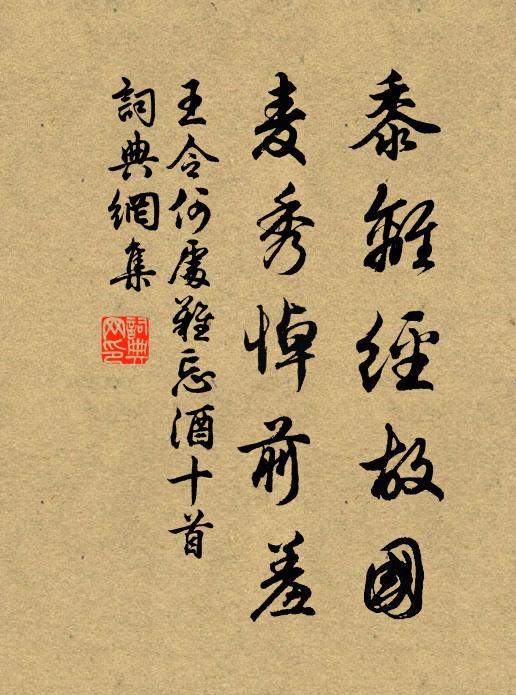 黍離經故國
麦秀悼前羞
王令何處難忘酒十首
詞典網集
詞典网印